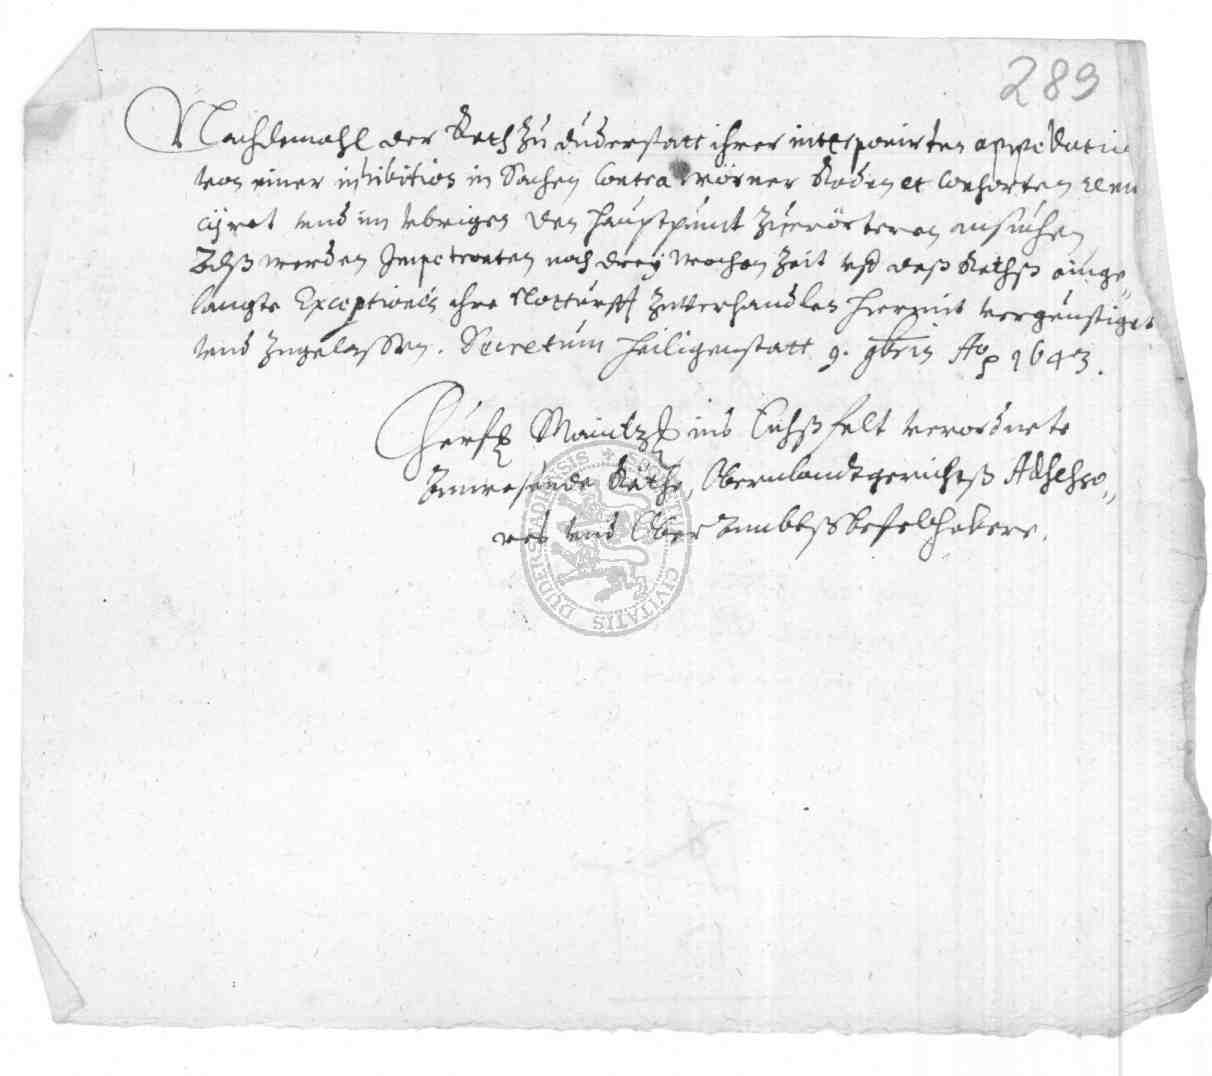 289
Nachdemahl der Rath zu Duderstatt ihrer interponirten appellation
von einer inhibition in Sachen Contra Wörner Roden et Consorten renun
cijret vnd im vbrigen den hauptpunct zuerörteren ansuchen
Alß werden Impetranten noch drey wochen Zeit vf deß Rathß einge„
langte Exceptiones ihre Notturfft zuverhandlen hiermit vergünstiget
vnd zugelassen. Decretum Heiligenstatt 9. 9bris Ao 1643.
Churf Maintz ins Eichßfelt verordnete
Anwesende Räthe, Oberlandtgerichtß Assesso„
res vnd Ober Ambtßbefelchhabere.
SIGILLUM CIVITATIS DUDERSTADIENSIS